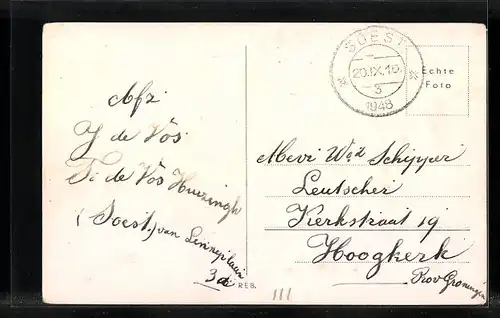 Afz
J de Vos
Ti de Vos Huizingh
(Soest.) van Lenneplaan
3a
REB.
SOEST
20.IX.16
3
1948
Echte
Foto
Mevr Wed Schipper
Leutscher
Kerkstraat 19
Hoogkerk
Prov Groningen